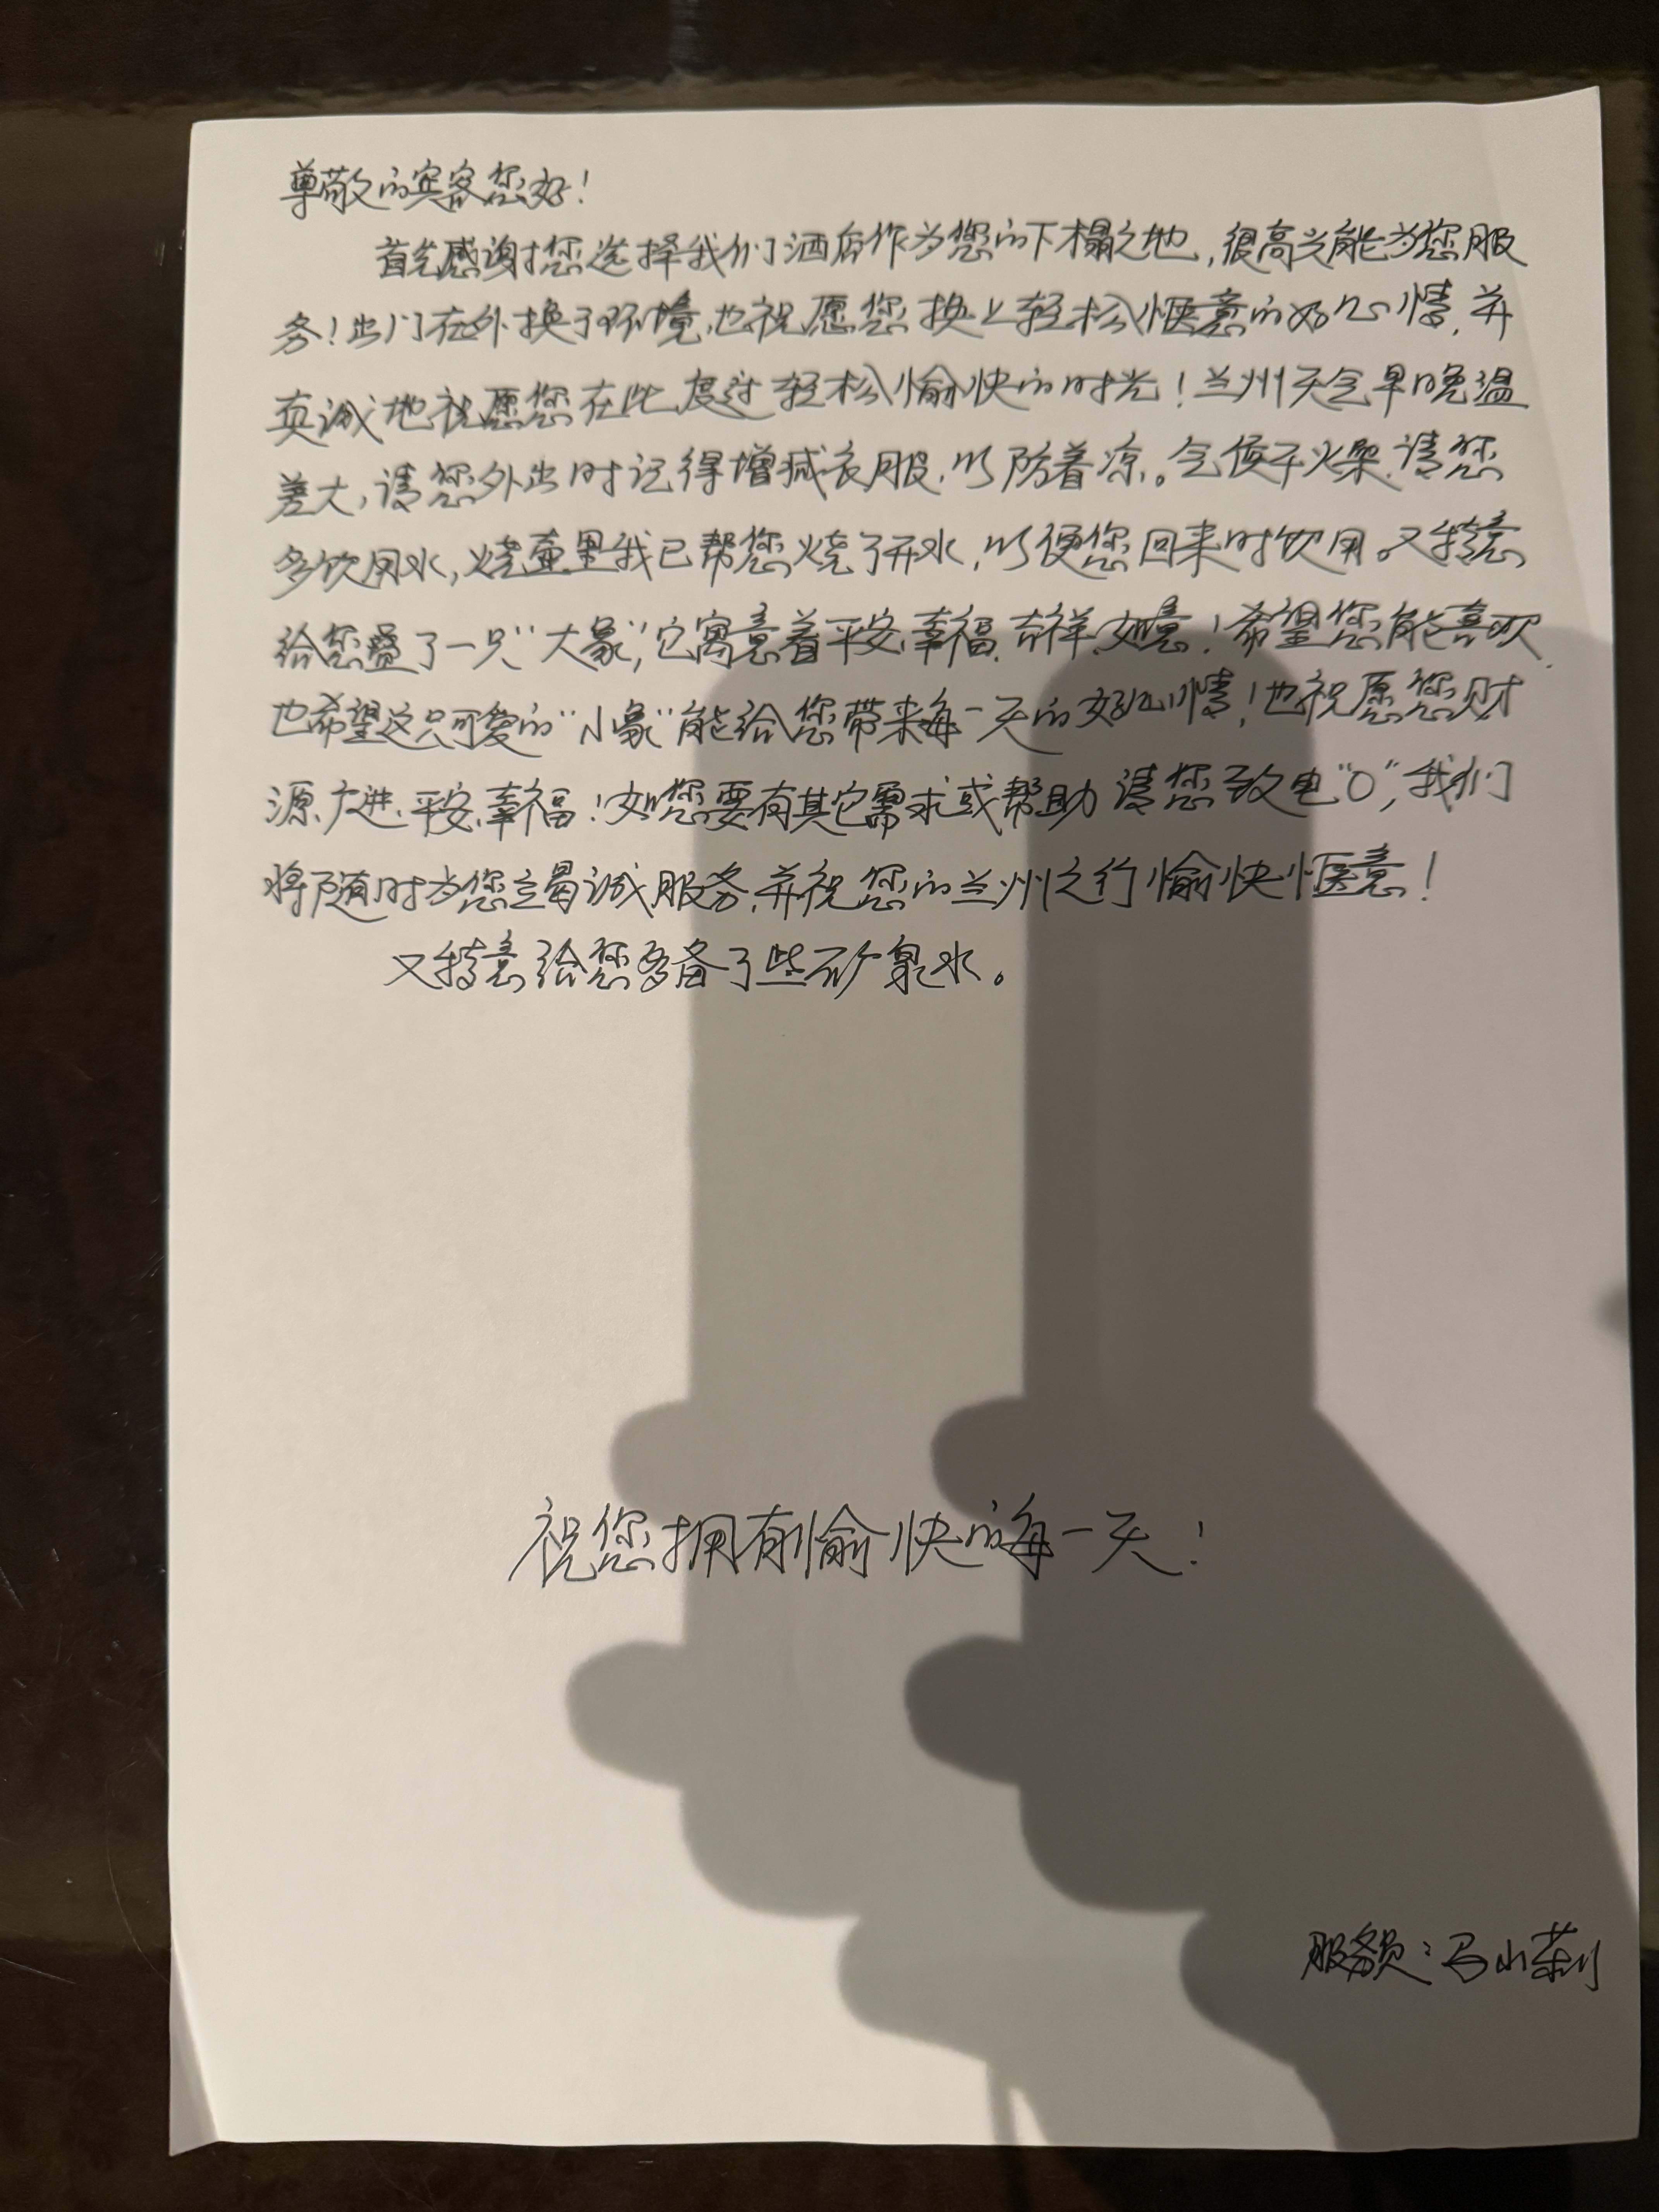 尊敬的宾客您好！
首先感谢您选择我们酒店作为您的下榻之地，很高兴能为您服
务！出门在外换了环境，也祝愿您换上轻松惬意的好心情，并
真诚地祝愿您在此度过轻松愉快的时光！兰州天气早晚温
差大，请您外出时记得增减衣服，以防着凉。气候干燥，请您
多饮用水，烧壶里我已帮您烧了开水，以便您回来时饮用。又特意
给您叠了一只“大象”，它寓意着平安、幸福、吉祥、如意！希望您能喜欢，
也希望这只可爱的“小象”能给您带来每一天的好心情！也祝愿您财
源广进、平安、幸福！如您要有其它需求或帮助请您致电“0”，我们
将随时为您竭诚服务，并祝您的兰州之行愉快惬意！
又特意给您多备了些矿泉水。
祝您拥有愉快的每一天！
服务员：马小莉